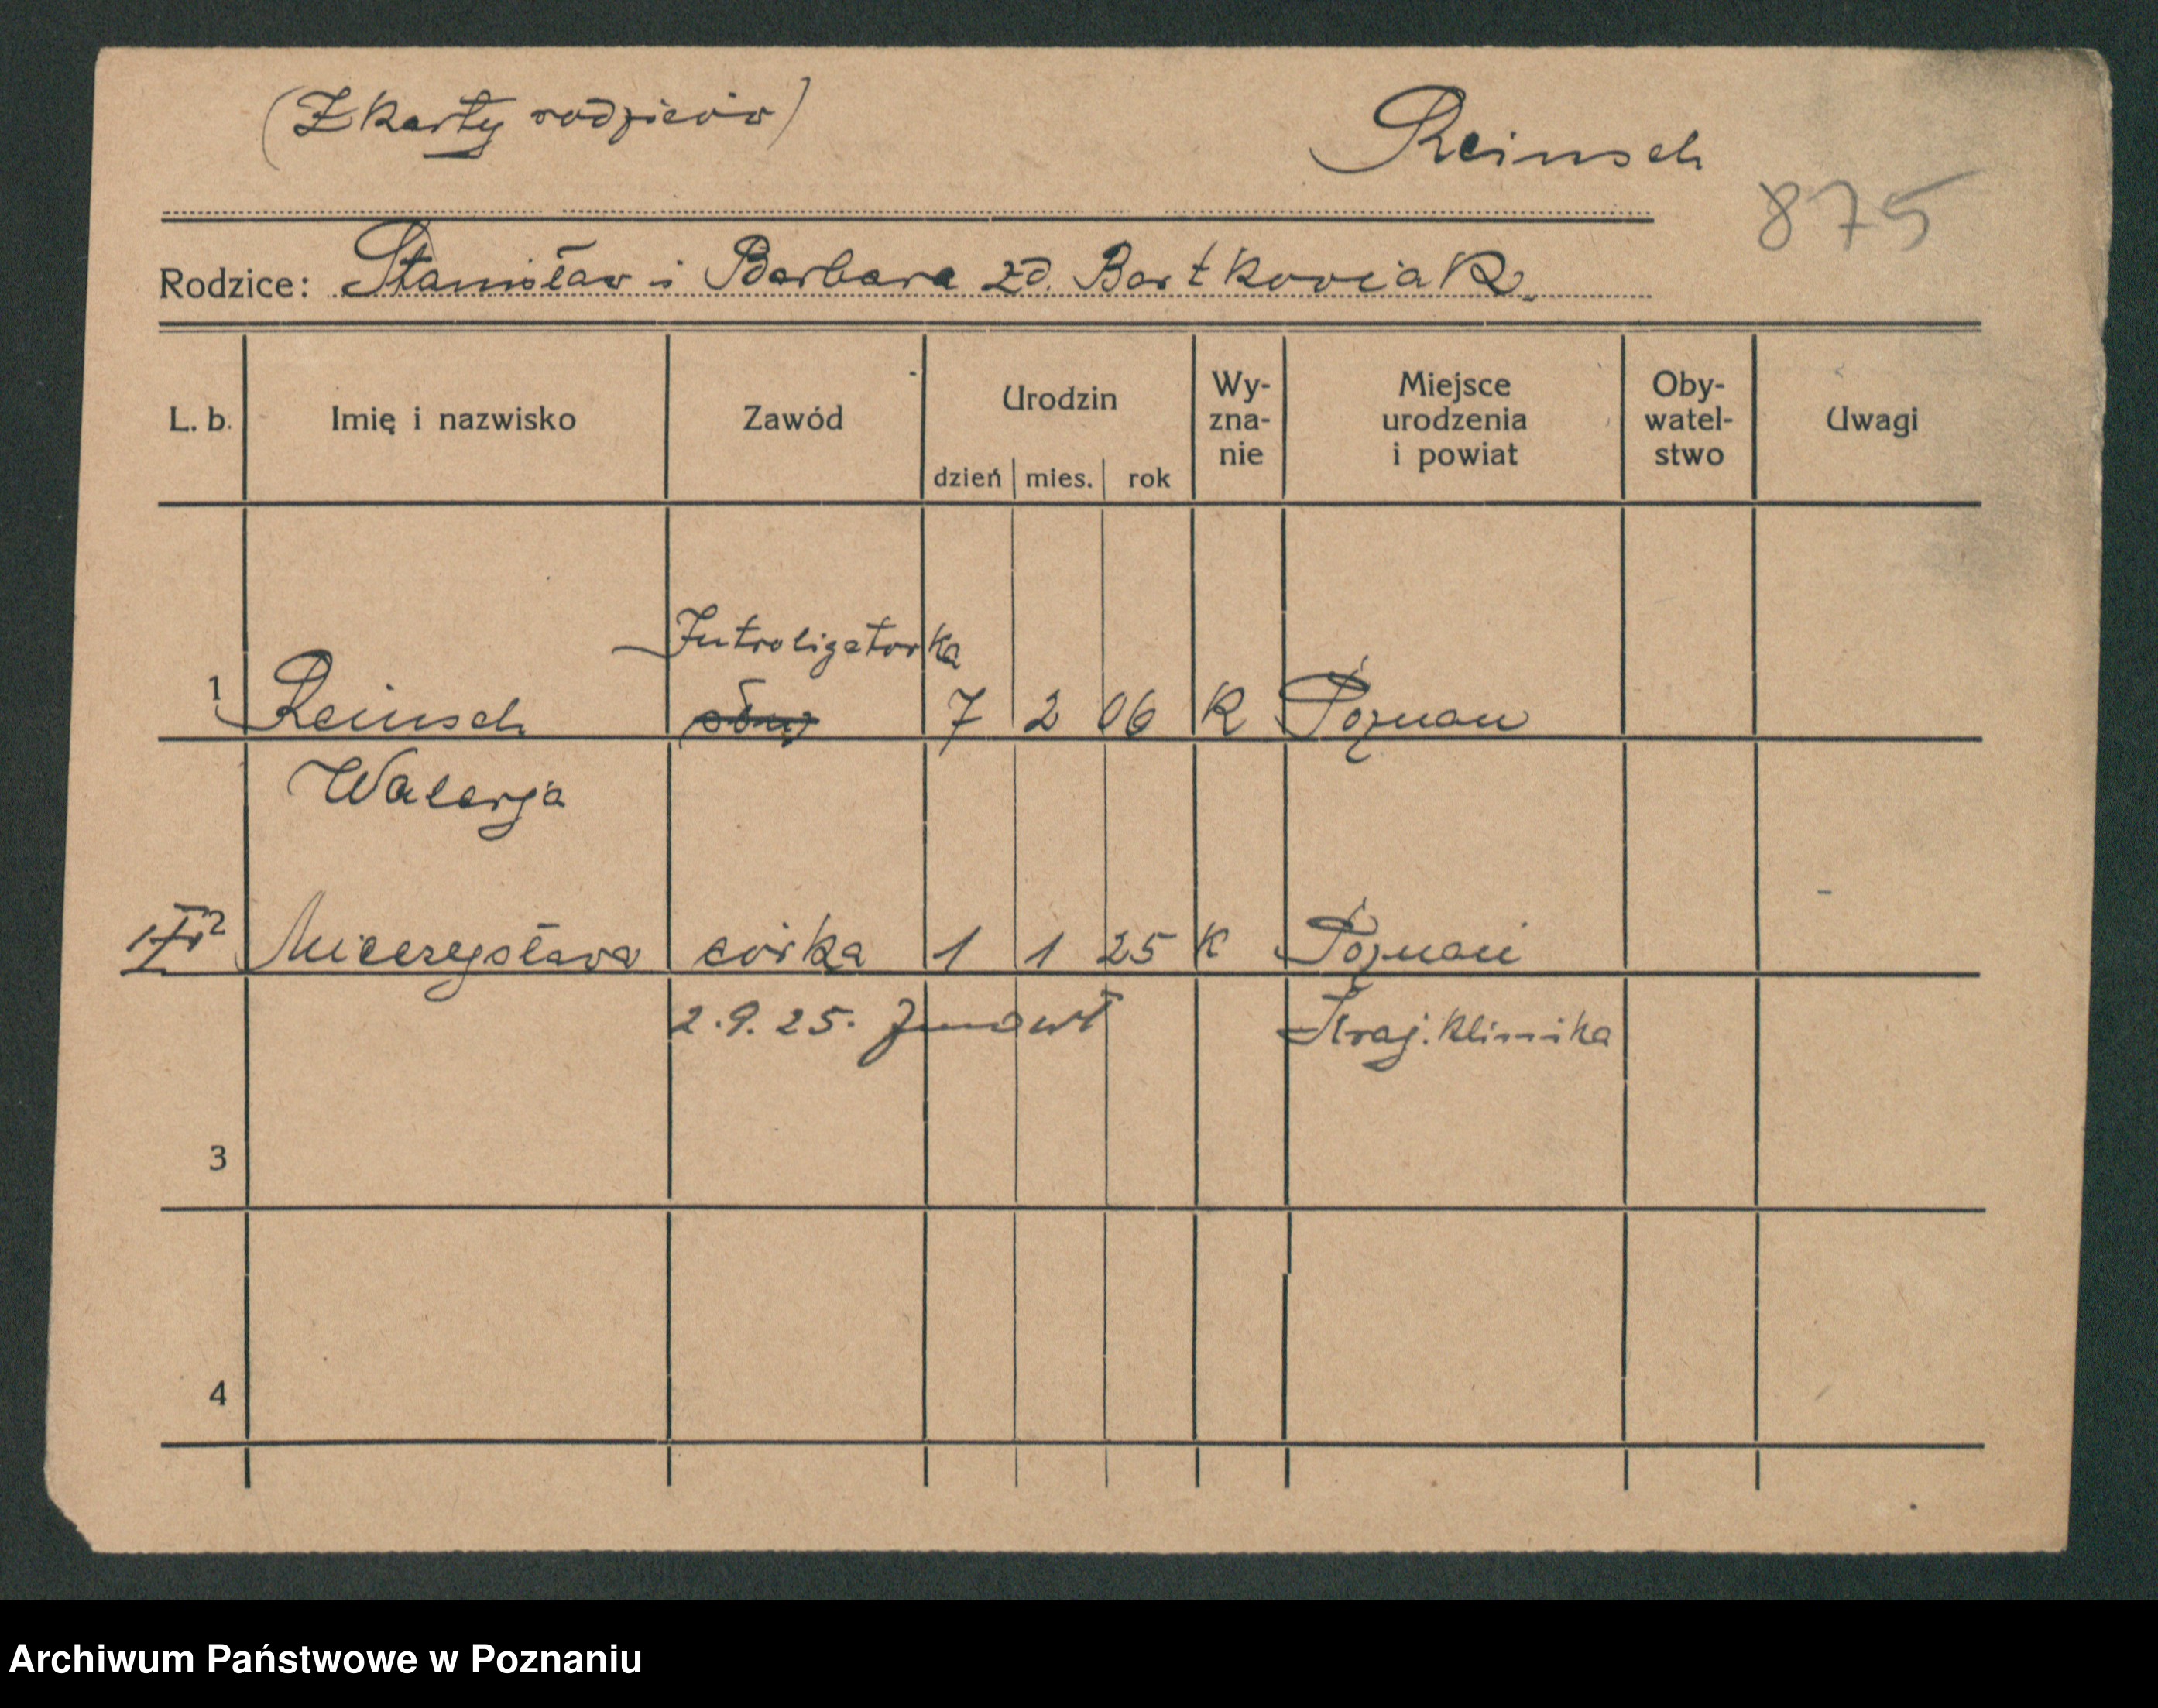 (Z karty rodziców)
Reinsch
875
Rodzice: Stanisław i Barbara zd. Bartkowiak.
L. b. Imię i nazwisko Zawód Urodzin dzień mies. rok Wy-zna-nie Miejsce urodzenia i powiat Oby-watel-stwo Uwagi
Introligatorka
1 Reinsch 7 2 06 K Poznań
Walerja
2 Mieczysława córka 1 1 25 K Poznań
2.9.25. zmarł Kraj. Klinika
3
4
Archiwum Państwowe w Poznaniu